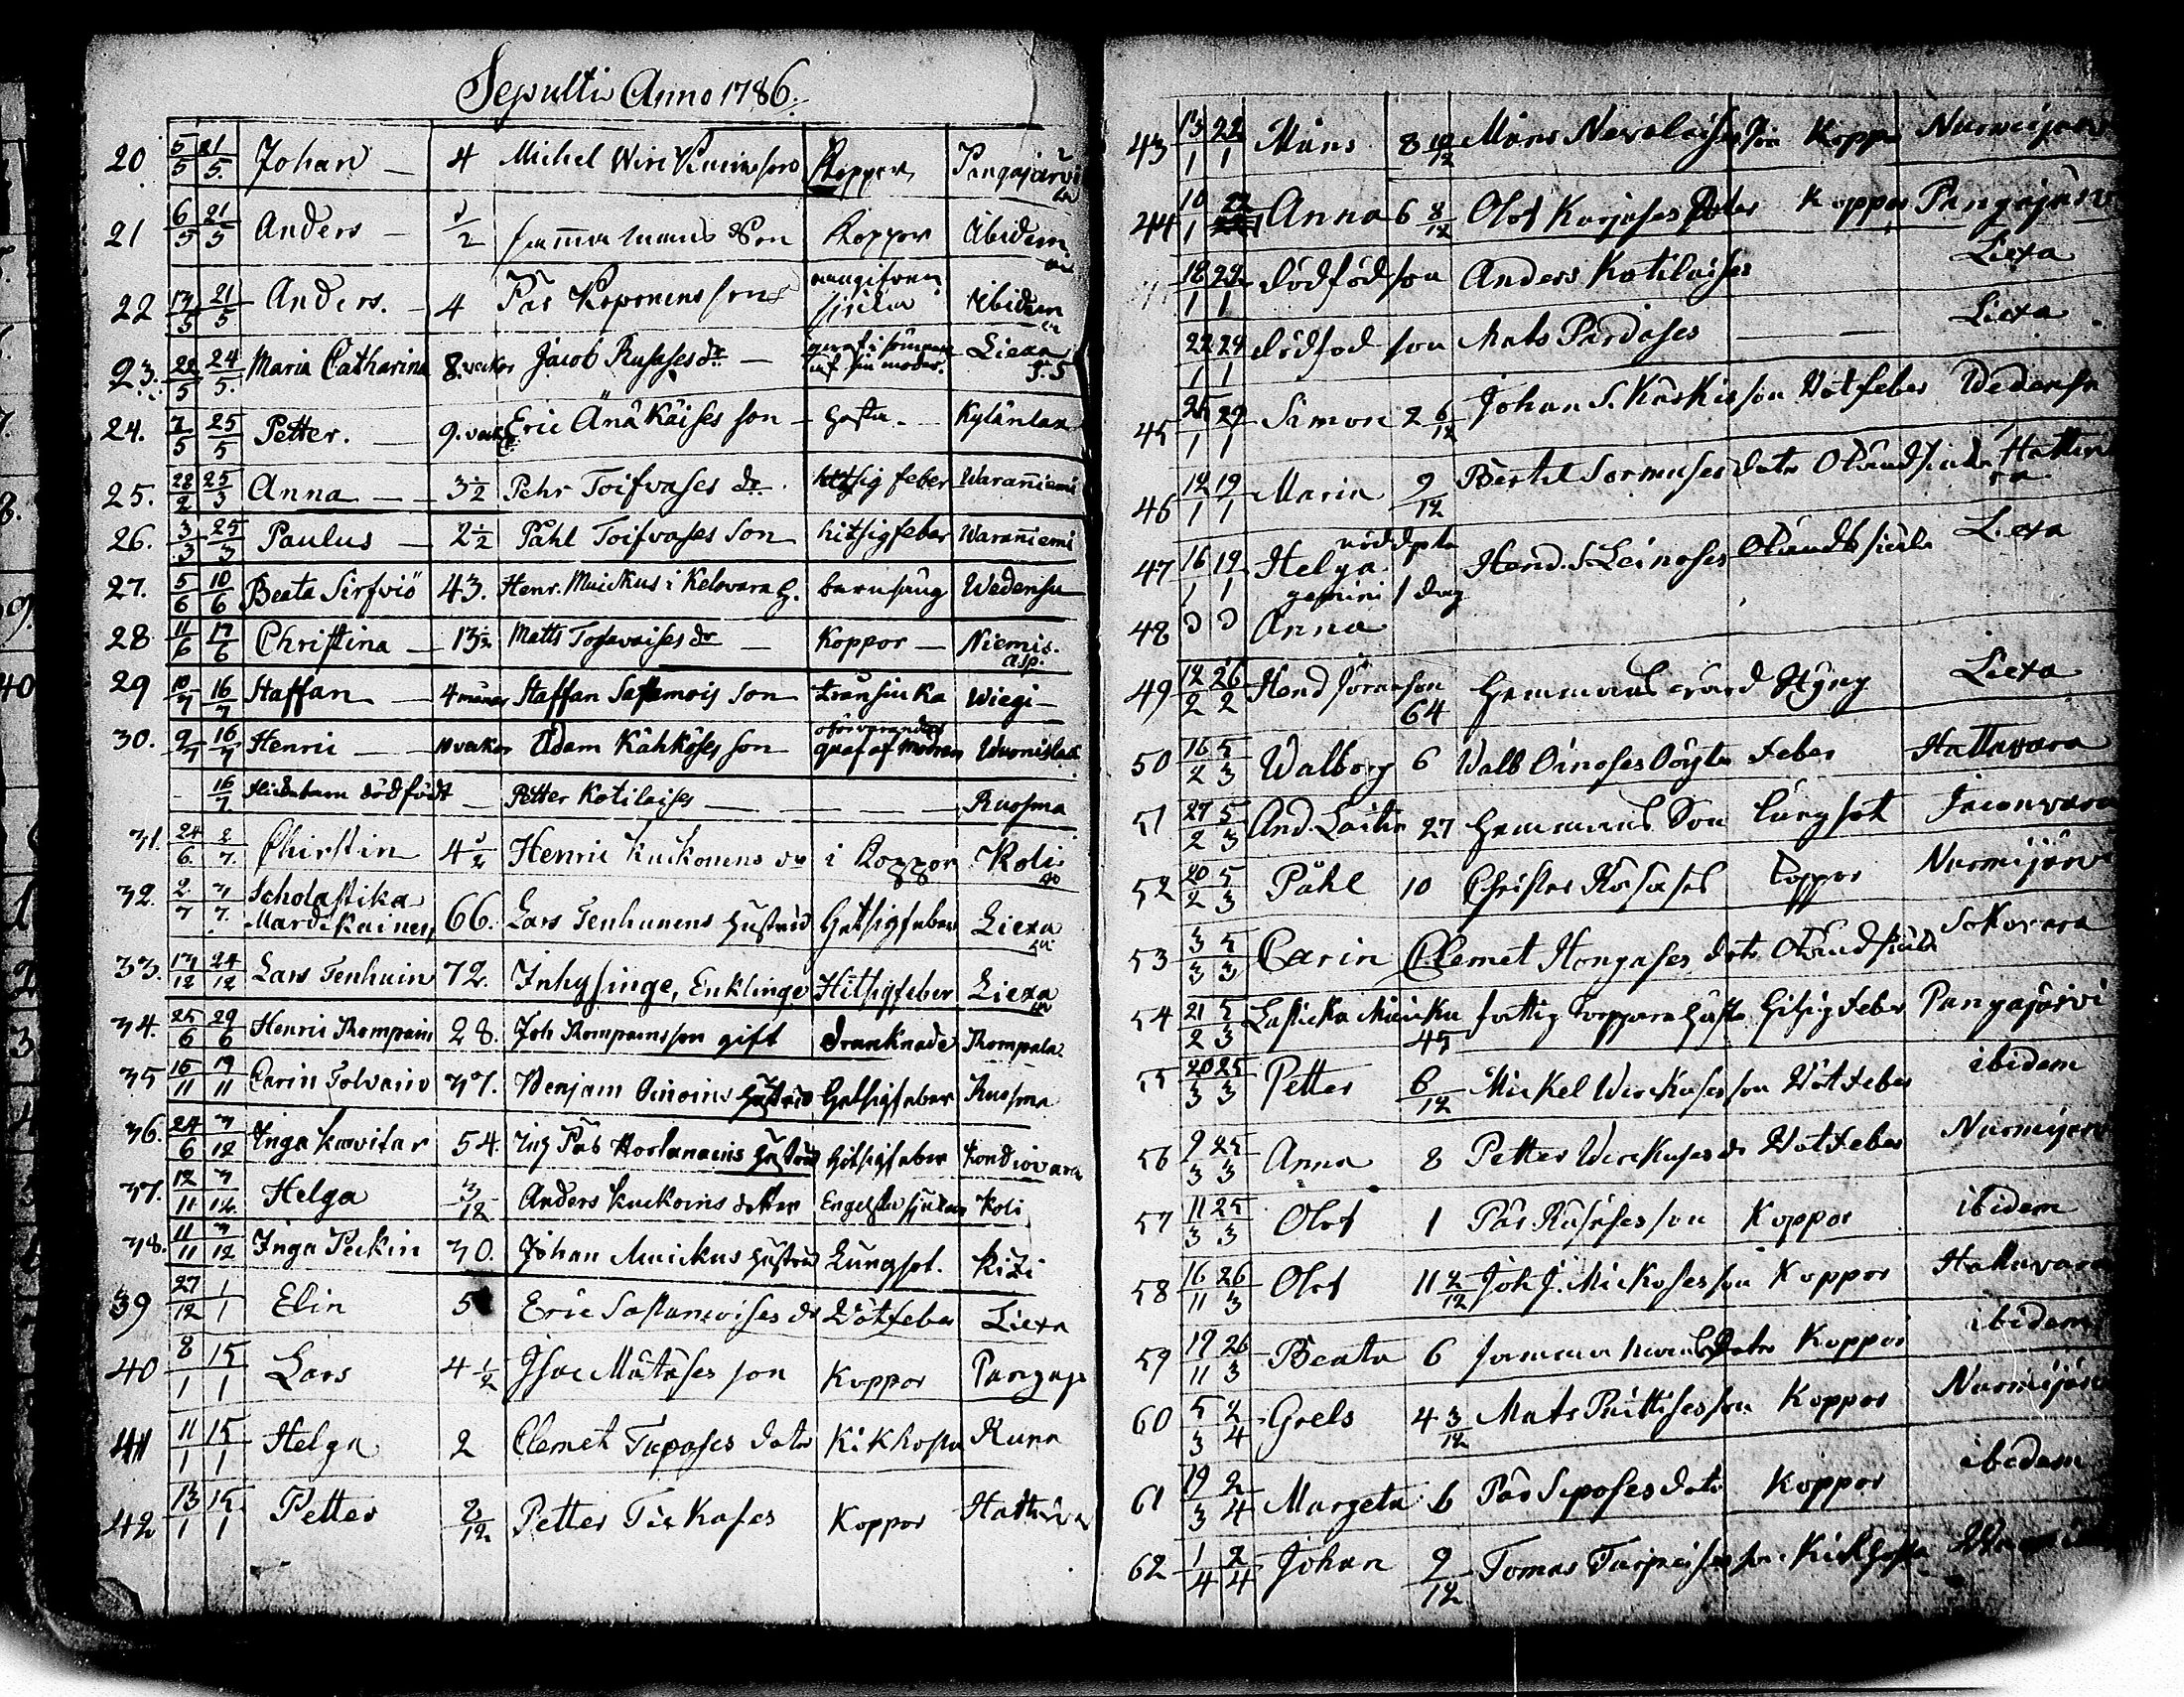 Sepulti Anno 1786.
20. 5/5 21/5 Johan — 4 Michel Wirikuins son Koppor Pangajärvi
21 6/5 21/5 Anders — 1/2 samma mans Son Koppor Ibidem
22 13/5 21/5 Anders. — 4 Pär Koponens son siuka Ibidem
23. 22/5 24/5 Maria Catharina 8 veckor Jacob Rusases dr — qvafd i sömnen af sin moder. Liexa
24. 7/5 25/5 Petter. — 9. veckor Eric Änäkäises son — hosta — Kylänlax
25. 28/2 25/3 Anna — 3 1/2 Pehr Toifvases dr. hitsig feber Waraniemi
26. 3/3 25/3 Paulus — 2 1/2 Påhl Toifvases Son hitsigfeber Waraniemi
27. 5/6 10/6 Beata Sirfviö 43. Henr. Muickus i Kelovara h. barnsäng Wedensu
28 11/6 17/6 Christina — 13 1/2 Matts Tossavaises dr — Koppor — Niemis.
29 10/7 16/7 Staffan — 4 månar Staffan Sastamois Son Wiegi —
30. 9/7 16/7 Henric — 10 veckor Adam Kähköses son — qvaf af modren Wuonislax
16/7 dödfödt — Petter Kotilaises — — — Ruosma
31. 24/6 2/7 Chirstin 4 1/2 Henric Kuckonens dr i Koppor Koli
32. 2/7 7/7 Scholastika Mardikainen 66. Lars Tenhunens hustru Hetsigfeber Liexa
33. 13/12 24/12 Lars Tenhuin 72. Inhysinge, Enklinge Hitsigfeber Liexa
34. 25/6 29/6 Henric Rompain 28. Joh Rompains son gift drunknade Rompala
35 16/11 19/11 Carin Tolvain 37. Benjam Oinoins hustru Hetsigfeber Ruosma
36. 24/6 3/12 Inga Kavitar 54. Inh Pär hustru Hitsigfeber Kondiovara
37. 12/11 3/12 Helga 3/12 Anders Kuckoins dotter Engelska sjukan Koli
38. 11/11 3/12 Inga Peckin 30. Johan Muickus hustru Lungsot. Kizi
39 27/12 1/1 Elin 5 Eric Sastamoises dr Rötfeber Liexa
40 8/1 15/1 Lars 4 1/2 Isac Mätäses son Koppor Pangaj
41 11/1 15/1 Helga 2 Clemet Tuposes dotr Kikhosta Runa
42 13/1 15/1 Petter 2/12 Petter Tickases Koppor
43 13/1 22/1 Måns 8 10/12 Måns Nevalaises son Koppor Nurmijärvi
44 10/1 Anna 6 8/12 Olof Karjases doter Koppor Pangajärvi
18/1 22/1 dödföd son Anders Kotilaises Liexa
22/1 29/1 dödföd son Mats Pardases — Liexa
45 25/1 29/1 Simon 2 6/12 Johan S. Kuskis son Rötfeber Wedensu
46 12/1 19/1 Maria 9/12 Bertil Sormuses dotr Okänd siuka
47 16/1 19/1 Helga nöddpta Hend. S. Leinoses Okändk siuka Liexa
gemini 1 dag
48 D D Anna
49 12/2 26/2 Hend Sörenson 64 Hemmans Styng Liexa
50 16/2 5/3 Walborg 6 Walb Oinoses Dogter Feber Hattuvara
51 27/2 5/3 And. Laitin 27 Hemmans Son Lungsot Jaconvara
52 20/2 5/3 Påhl 10 Christer Koppor Nurmijärvi
53 3/3 5/3 Carin Clemet Hongases dotr Okänd siuka Sokovara
54 21/2 5/3 45 fattig hitsig Feber Pangajärvi
55 20/3 25/3 Petter 6/12 Mickel Wirckuses son Rötfeber ibidem
56 9/3 25/3 Anna 8 Petter Wirckuses dr Rötfeber Nurmijärvi
57 11/3 25/3 Olof 1 Pär Rusases son Koppor ibidem
58 16/11 26/3 Olof 11 2/12 Joh J. Mickoses son Koppor
59 19/11 26/3 Beata 6 samma mans Dotr Koppor ibidem
60 5/3 2/4 Grels 4 3/12 Mats Puittises son Koppor Nurmijärvi
61 19/3 2/4 Margeta 6 Pär Siposes dotr Koppor ibidem
62 1/4 2/4 Johan 9/12 Tomas Turpeises son Kickhosta